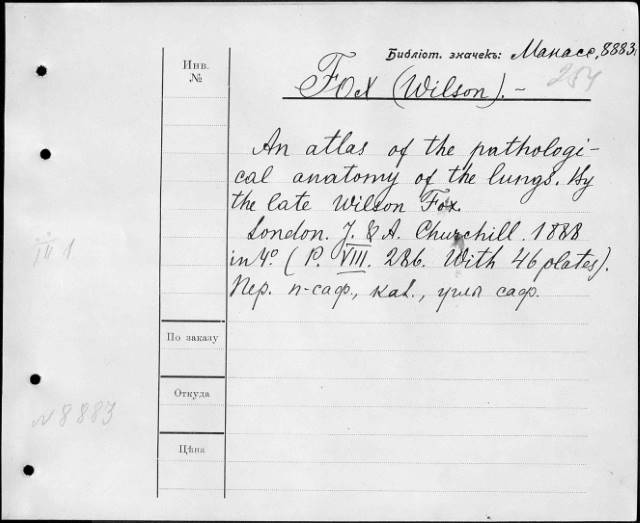 Библіот. значекъ: Манасс, 8883.
Инв.
№
Fox (Wilson). –
254
An atlas of the pathologi-
cal anatomy of the lungs. By
the late Wilson Fox.
London. J. & A. Churchill. 1888
in 4º (P. VIII. 286. With 46 plates).
Пер. п-саф., кал., углы саф.
III 1
По заказу
Откуда
N 8883
Цѣна